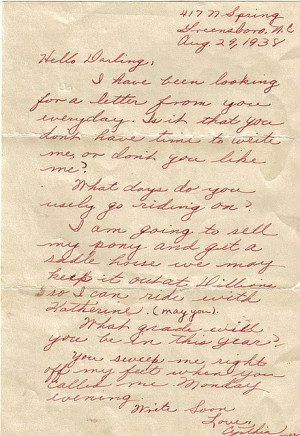 417 N Spring
Greensboro, N.C
Aug. 29, 1938
Hello Darling,
I have been looking
for a letter from you
everyday. Is it that you
don't have time to write
me, or don't you like
me?
What days do you
usely go riding on?
I am going to sell
my pony and get a
sadle horse we may
keep it out at
so I can ride with
Katherine. (may you).
What grade will
you be in this year?
You sweep me right
off my feet when you
called me Monday
evening.
Write Soon
Love,
Cynthia